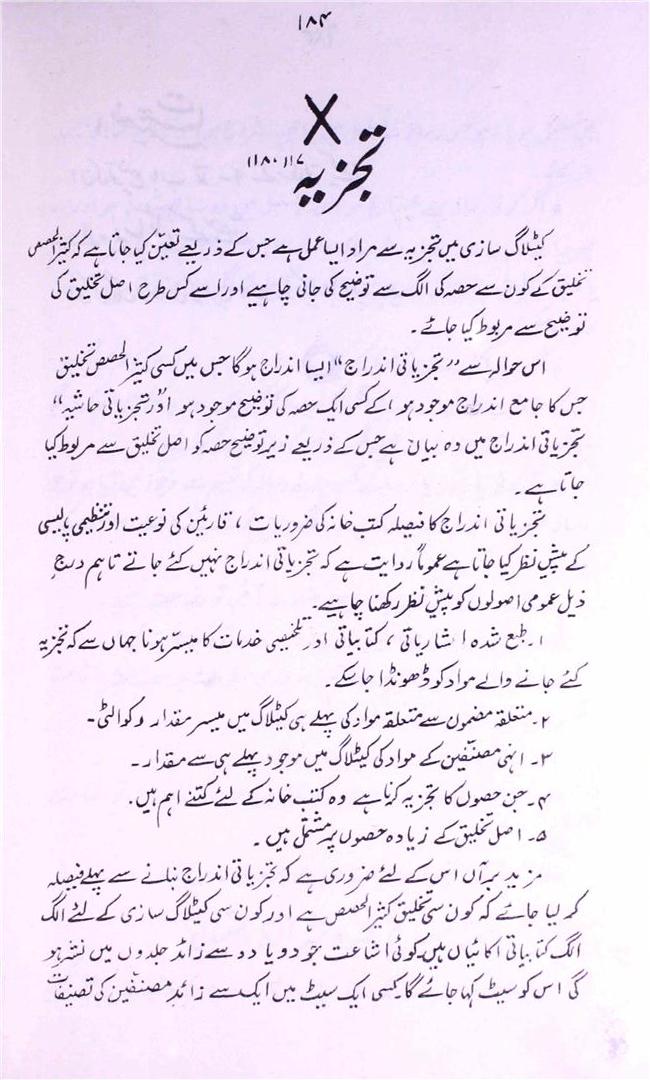 ۱۸۴
X
تجزیہ ۱۱۸۰۱۱۷
کیٹلاگ سازی میں تجزیہ سے مراد ایسا عمل ہے جس کے ذریعے تعین کیا جاتا ہے کہ کثیر الحصص
تخلیق کے کون سے حصہ کی الگ سے توضیح کی جانی چاہیے اور اسے کس طرح اصل تخلیق کی
توضیح سے مربوط کیا جائے۔
اس حوالہ سے ”تجزیاتی اندراج“ ایسا اندراج ہوگا جس میں کسی کثیر الحصص تخلیق
جس کا جامع اندراج موجود ہو، کے کسی ایک حصہ کی توضیح موجود ہو اور ”تجزیاتی حاشیہ“
تجزیاتی اندراج میں وہ بیان ہے جس کے ذریعے زیر توضیح حصہ کو اصل تخلیق سے مربوط کیا
جاتا ہے۔
تجزیاتی اندراج کا فیصلہ کتب خانہ کی ضروریات، قارئین کی نوعیت اور تنظیمی پالیسی
کے پیش نظر کیا جاتا ہے عموماً روایت ہے کہ تجزیاتی اندراج نہیں کئے جاتے تاہم درج
ذیل عمومی اصولوں کو پیش نظر رکھنا چاہیے۔
۱۔ طبع شدہ اشاریاتی، کتابیاتی اور تلخیصی خدمات کا میسر ہونا جہاں سے کہ تجزیہ
کئے جانے والے مواد کو ڈھونڈا جا سکے۔
۲۔ متعلقہ مضمون سے متعلقہ مواد کی پہلے ہی کیٹلاگ میں میسر مقدار و کوالٹی۔
۳۔ انہی مصنفین کے مواد کی کیٹلاگ میں موجود پہلے ہی سے مقدار۔
۴۔ جن حصوں کا تجزیہ کرنا ہے وہ کتب خانہ کے لئے کتنے اہم ہیں۔
۵۔ اصل تخلیق کے زیادہ حصوں پر مشتمل ہیں۔
مزید برآں اس کے لئے ضروری ہے کہ تجزیاتی اندراج بنانے سے پہلے فیصلہ
کر لیا جائے کہ کون سی تخلیق کثیر الحصص ہے اور کون سی کیٹلاگ سازی کے لئے الگ
الگ کتابیاتی اکائیاں ہیں۔ کوئی اشاعت جو دو یا دو سے زائد جلدوں میں نشر ہو
گی اس کو سیٹ کہا جائے گا۔ کسی ایک سیٹ میں ایک سے زائد مصنفین کی تصنیفات